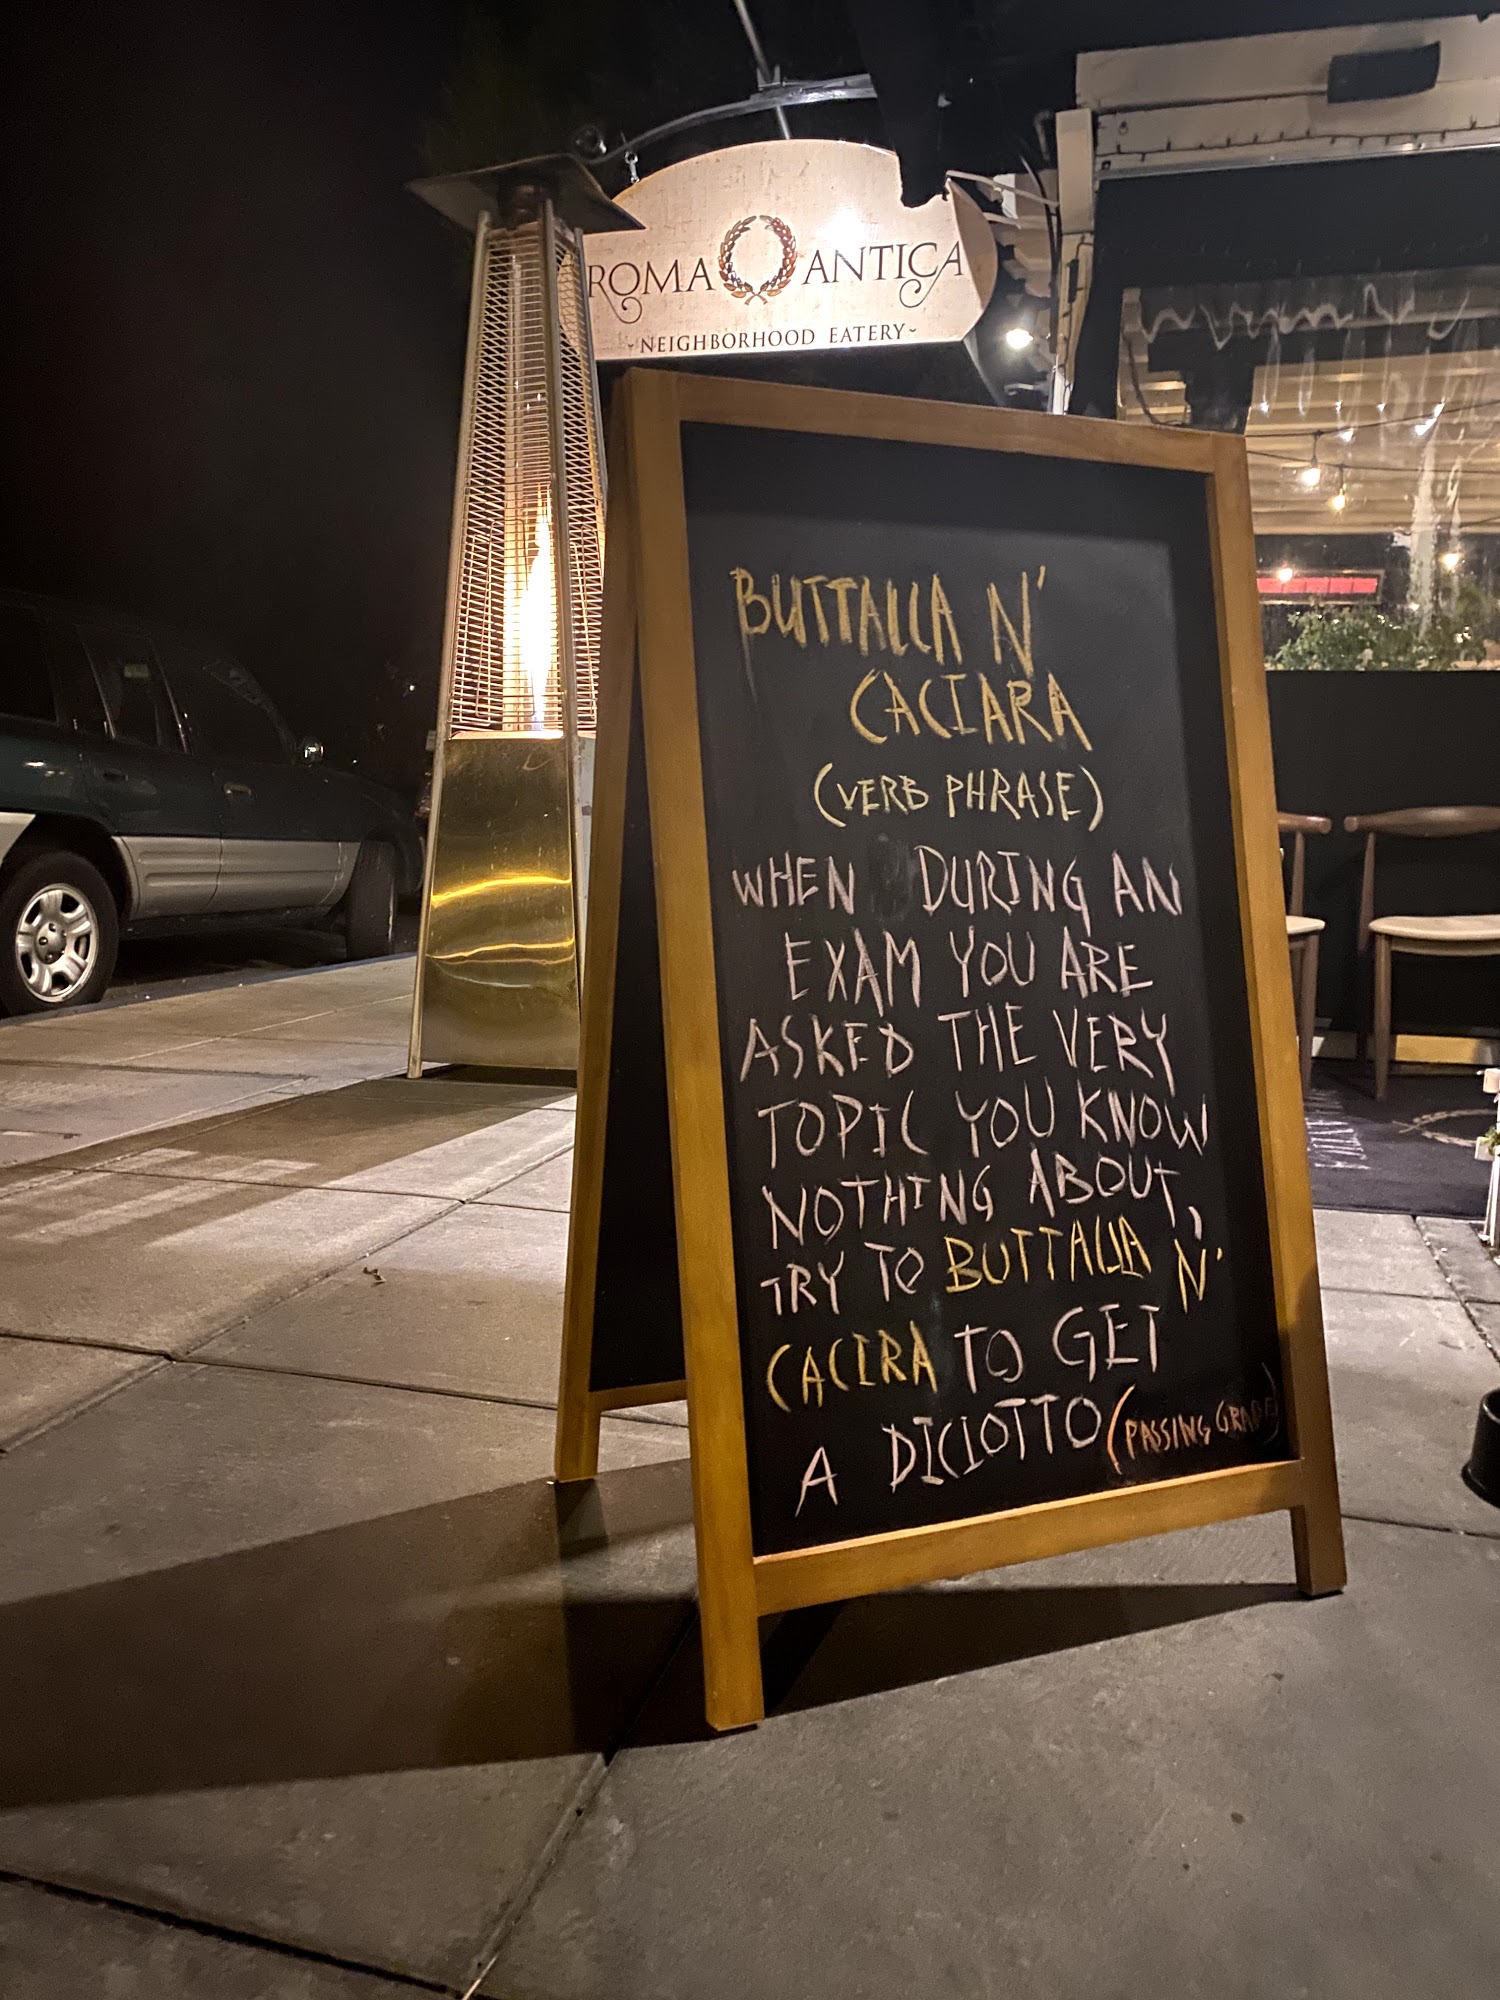 ROMA ANTICA
~NEIGHBORHOOD EATERY~
BUTTALLA N'
CACIARA
(VERB PHRASE)
WHEN DURING AN
EXAM YOU ARE
ASKED THE VERY
TOPIC YOU KNOW
NOTHING ABOUT,
TRY TO BUTTALLA N'
CACIRA TO GET
A DICIOTTO (PASSING GRADE)